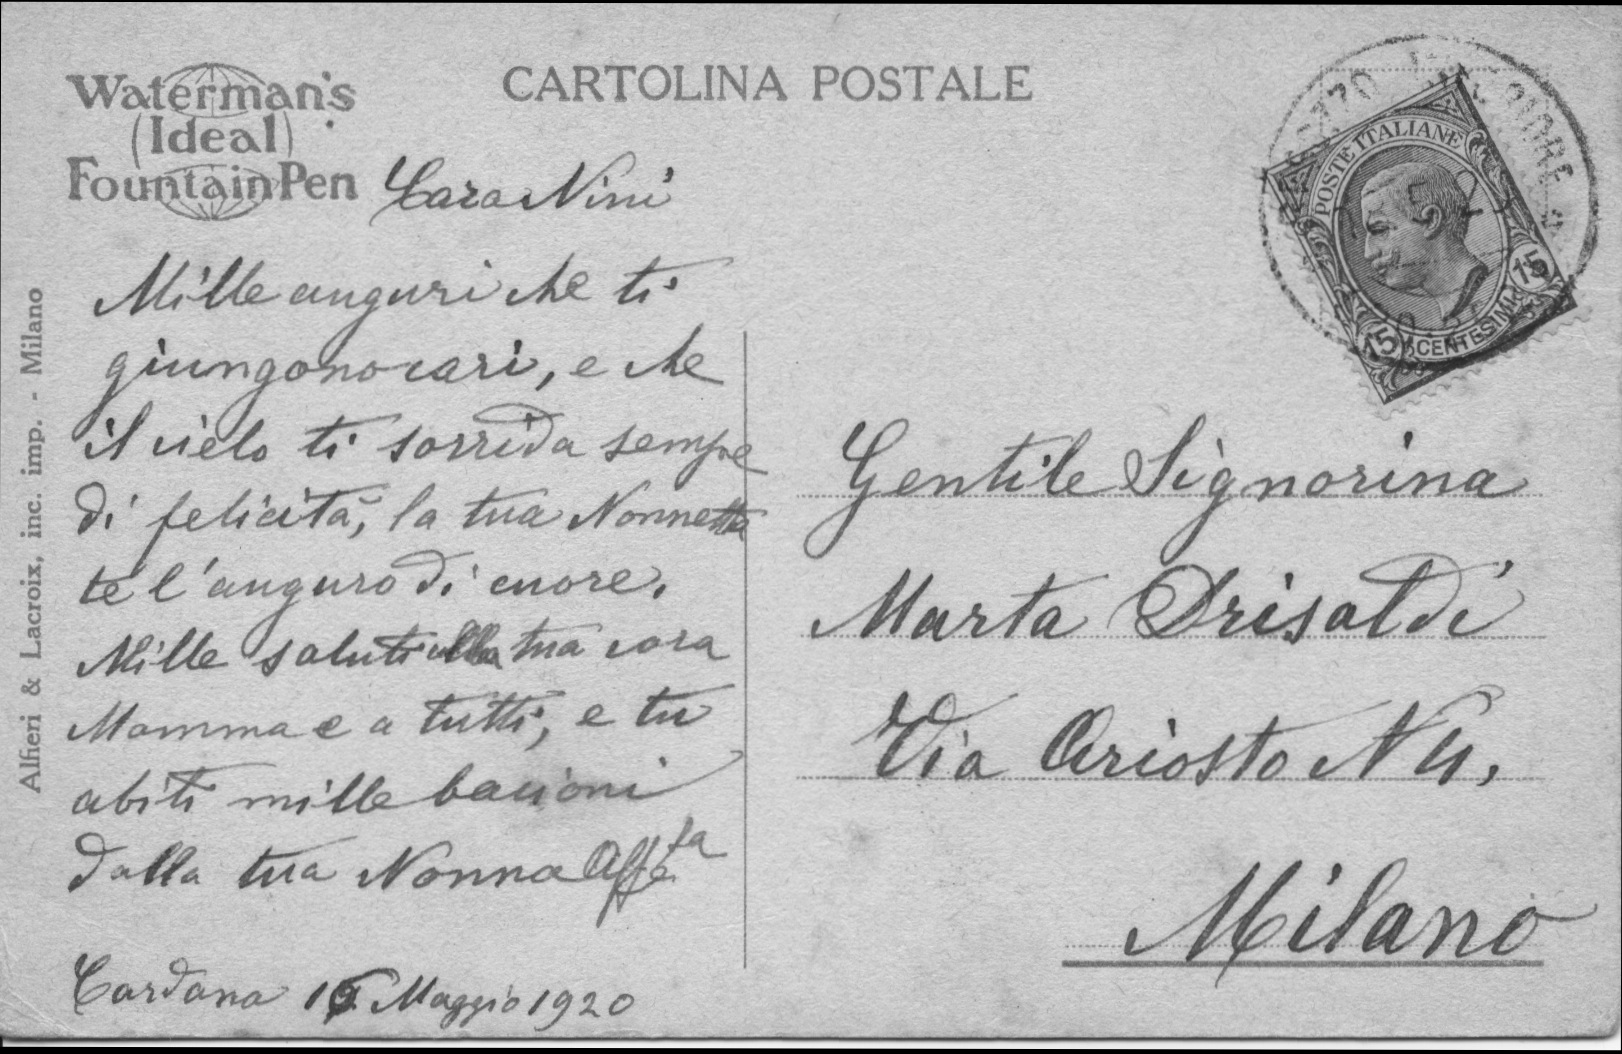 CARTOLINA POSTALE
Waterman's
(Ideal)
Fountain Pen
Cara Nini
Mille auguri che ti
giungono cari, e che
il cielo ti sorrida sempre
di felicità, la tua Nonnetta
te l'auguro di cuore.
Mille saluti alla tua cara
Mamma e a tutti, e tu
abiti mille bacioni
dalla tua Nonna Affeta
Cardana 15 Maggio 1920
Alfieri & Lacroix, inc. imp. - Milano
POSTE ITALIANE
15 CENTESIMI 15
Gentile Signorina
Marta Drisaldi
Via Ariosto N 4,
Milano